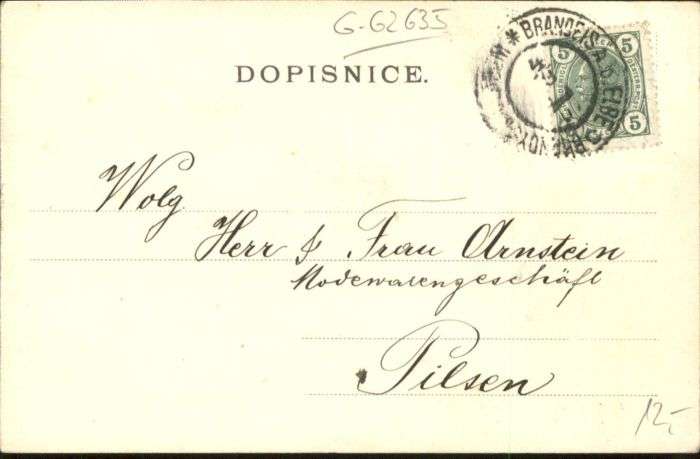 G-G2635
DOPISNICE.
BRANDEIS A.D. ELBE
5 5
5 5
Wolg
Herr & Frau Arnstein
Modewarengeschäft
Pilsen
12,-